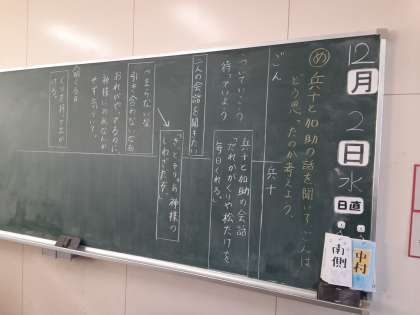 12月2日水
日直
中村
南側
め 兵十と加助の話を聞いてごんは
どう思ったのか考えよう。
ごん
兵十
ついていこう
待っていよう
兵十と加助の会話
「だれかがくりや松たけを
毎日くれる」
二人の会話を聞きたい
「きっとそりゃあ、神様の
しわざだぞ」
つまらないな
引き合わないなあ
おれがやってるのに
神様にお礼なんか